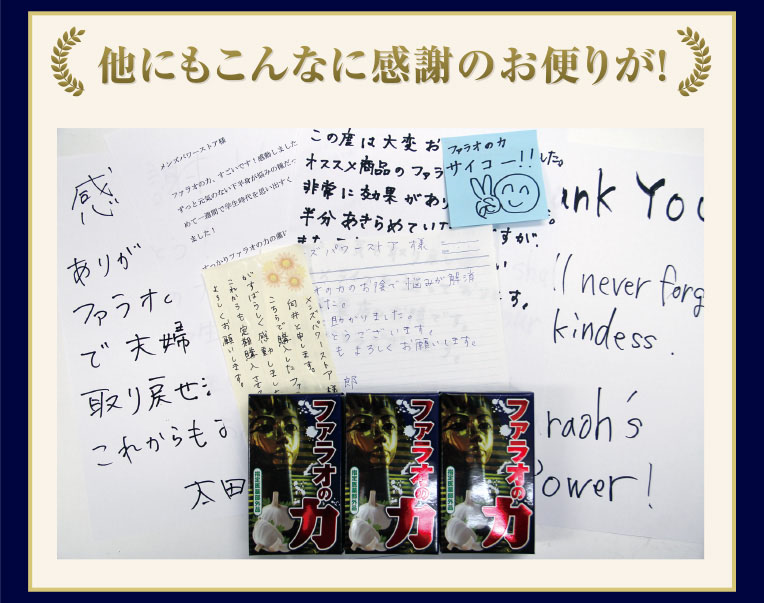 他にもこんなに感謝のお便りが!
メンズパワーストア様
ファラオの力、すごいです!感動しました
ずっと元気のない下半身が悩みの種だ
めて一週間で学生時代を思い出すく
ました!
すっかりファラオの力の虜
この度は大変お
オススメ商品のファラ
非常に効果があり
半分あきらめてい
すが
した。
す。
ファラオの力
サイコー!!
感
ありが
ファラオ
で夫婦
取り戻せ
これからも
太田
ank You
I never forg
kindess.
raoh's
Power!
ズパワーストア様
オの力のお陰で悩みが解消
た。
助かりました。
とうございます。
もよろしくお願いします。
郎
メンズパワーストア様
向井と申します。
こちらで購入したファ
いすばらしく感動しまし
これからも定期購入
よろしくお願いします。
ファラオの力
指定医薬部外品
ファラオの力
指定医薬部外品
ファラオの力
指定医薬部外品